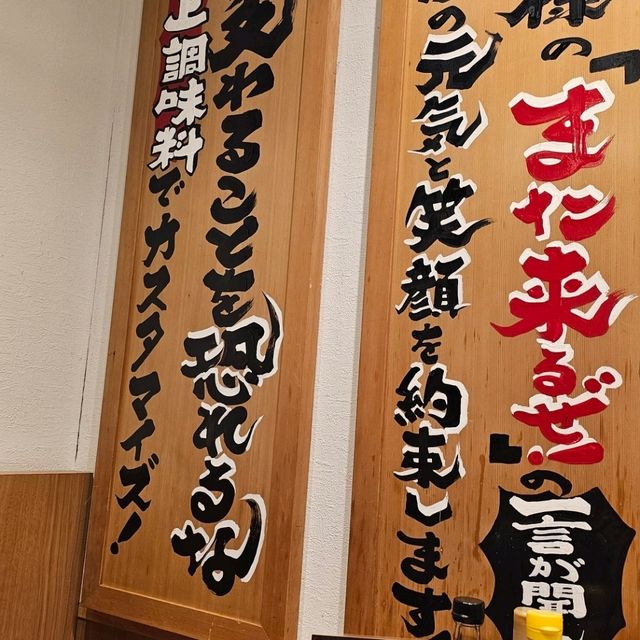 様の『また来るぜ!』の一言が聞
の元気と笑顔を約束します
変わることを恐れるな
上調味料でカスタマイズ!